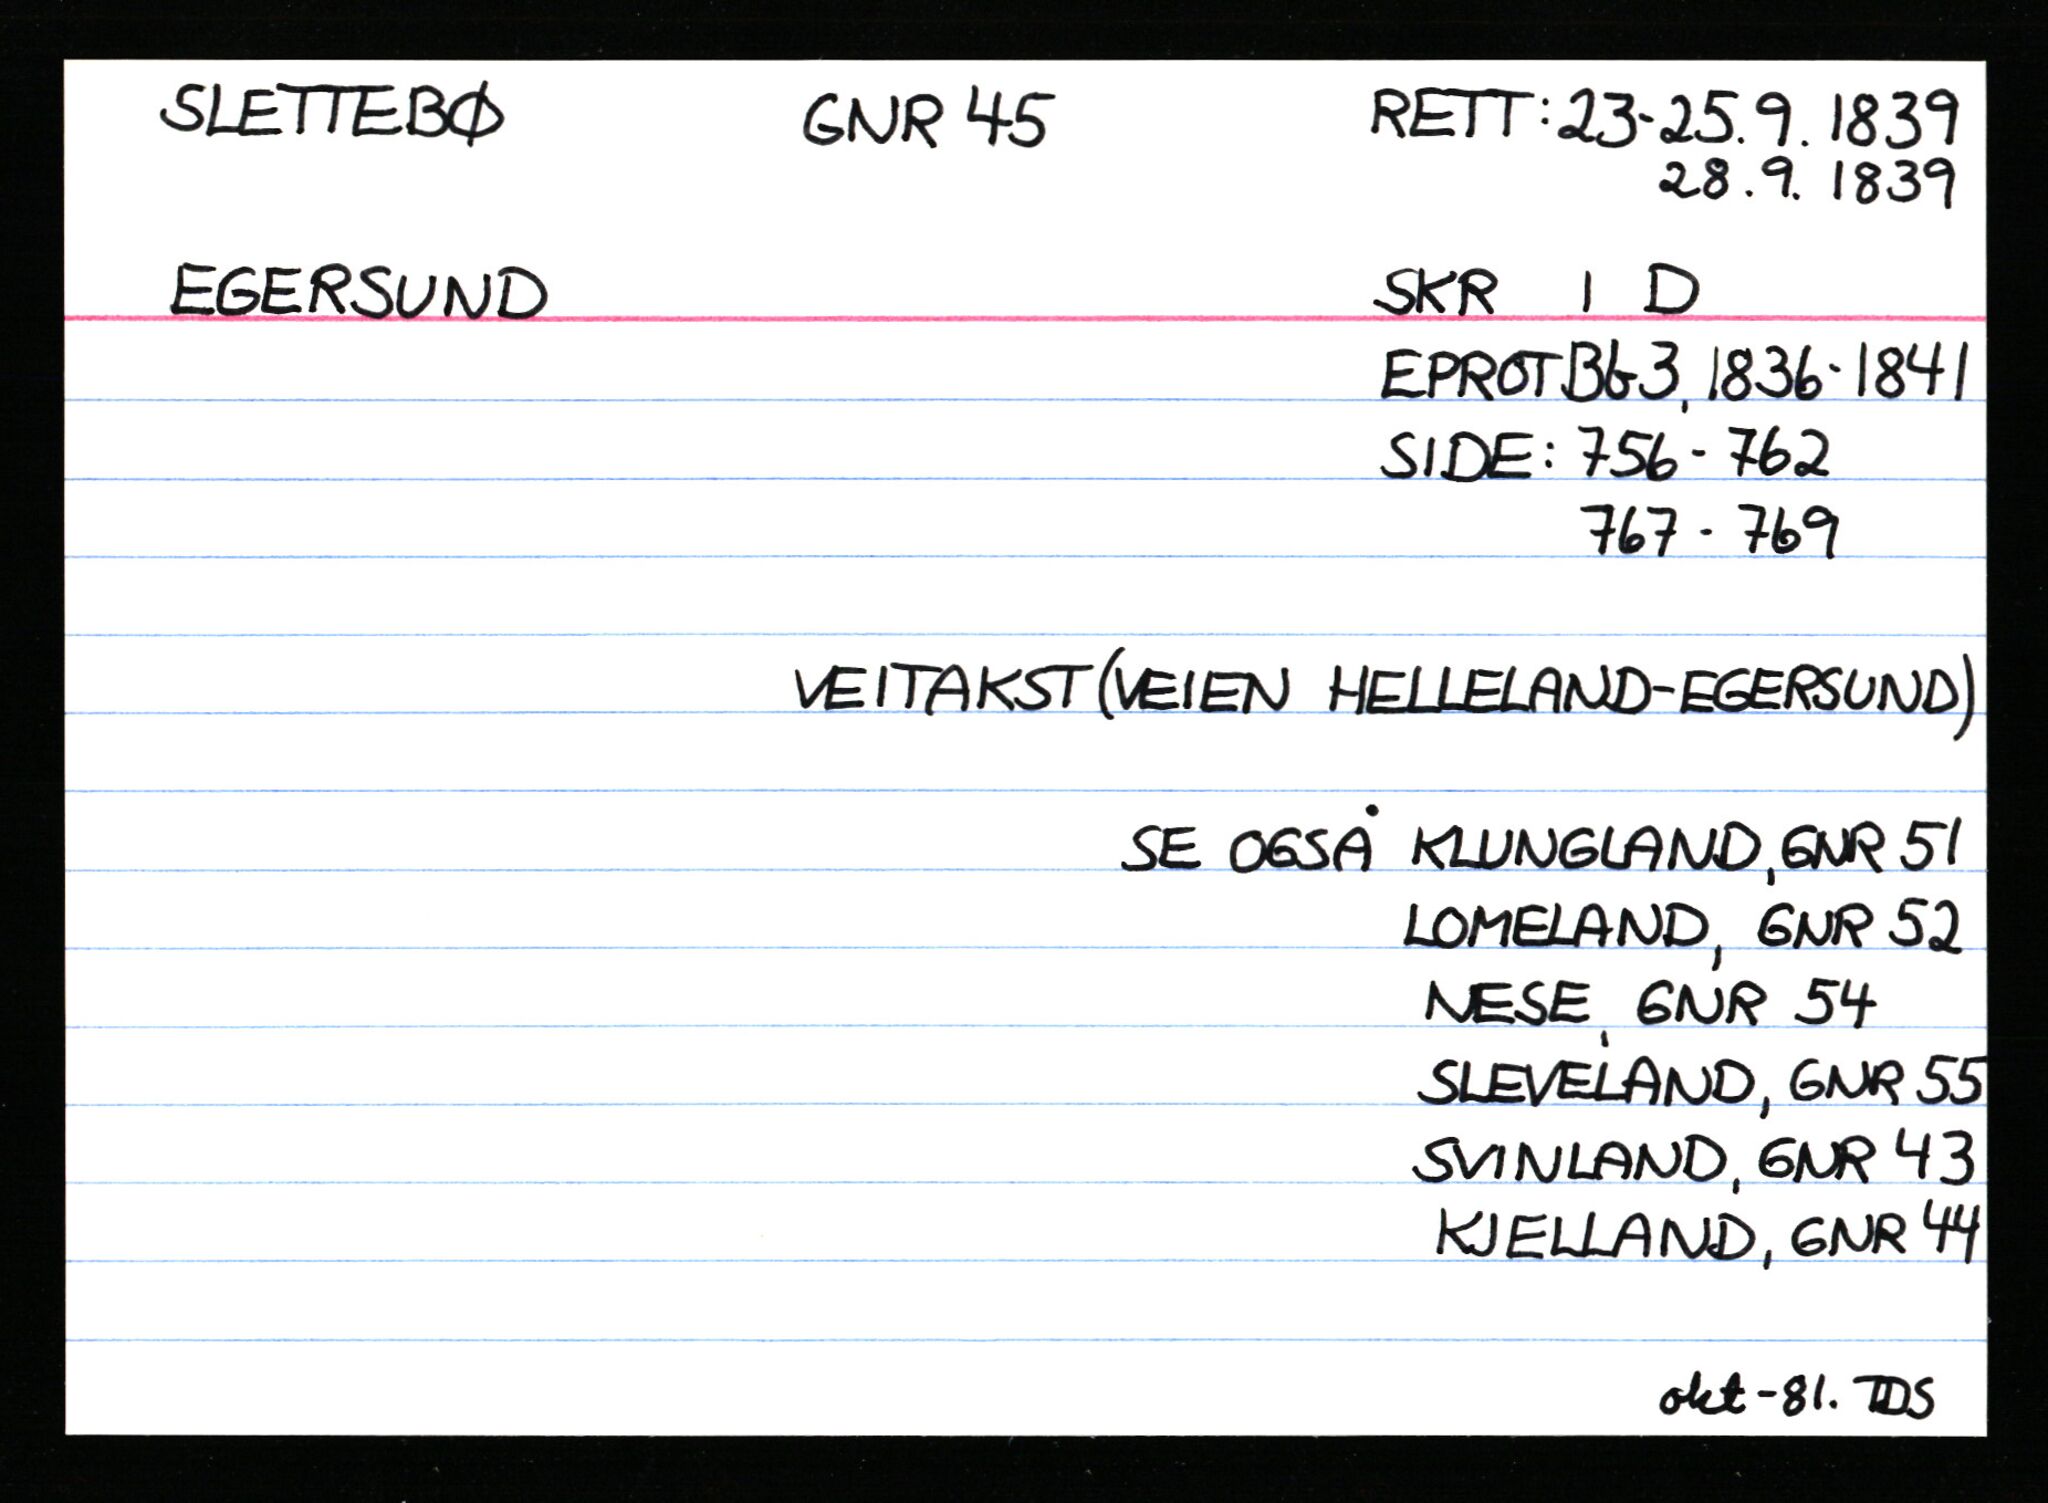 SLETTEBØ GNR 45 RETT: 23-25.9. 1839
28.9. 1839
EGERSUND SKR I D
EPROT BG3, 1836-1841
SIDE: 756 - 762
767 - 769
VEITAKST (VEIEN HELLELAND-EGERSUND)
SE OGSÅ KLUNGLAND, GNR 51
LOMELAND, GNR 52
NESE, GNR 54
SLEVELAND, GNR 55
SVINLAND, GNR 43
KJELLAND, GNR 44
okt-81. TDS